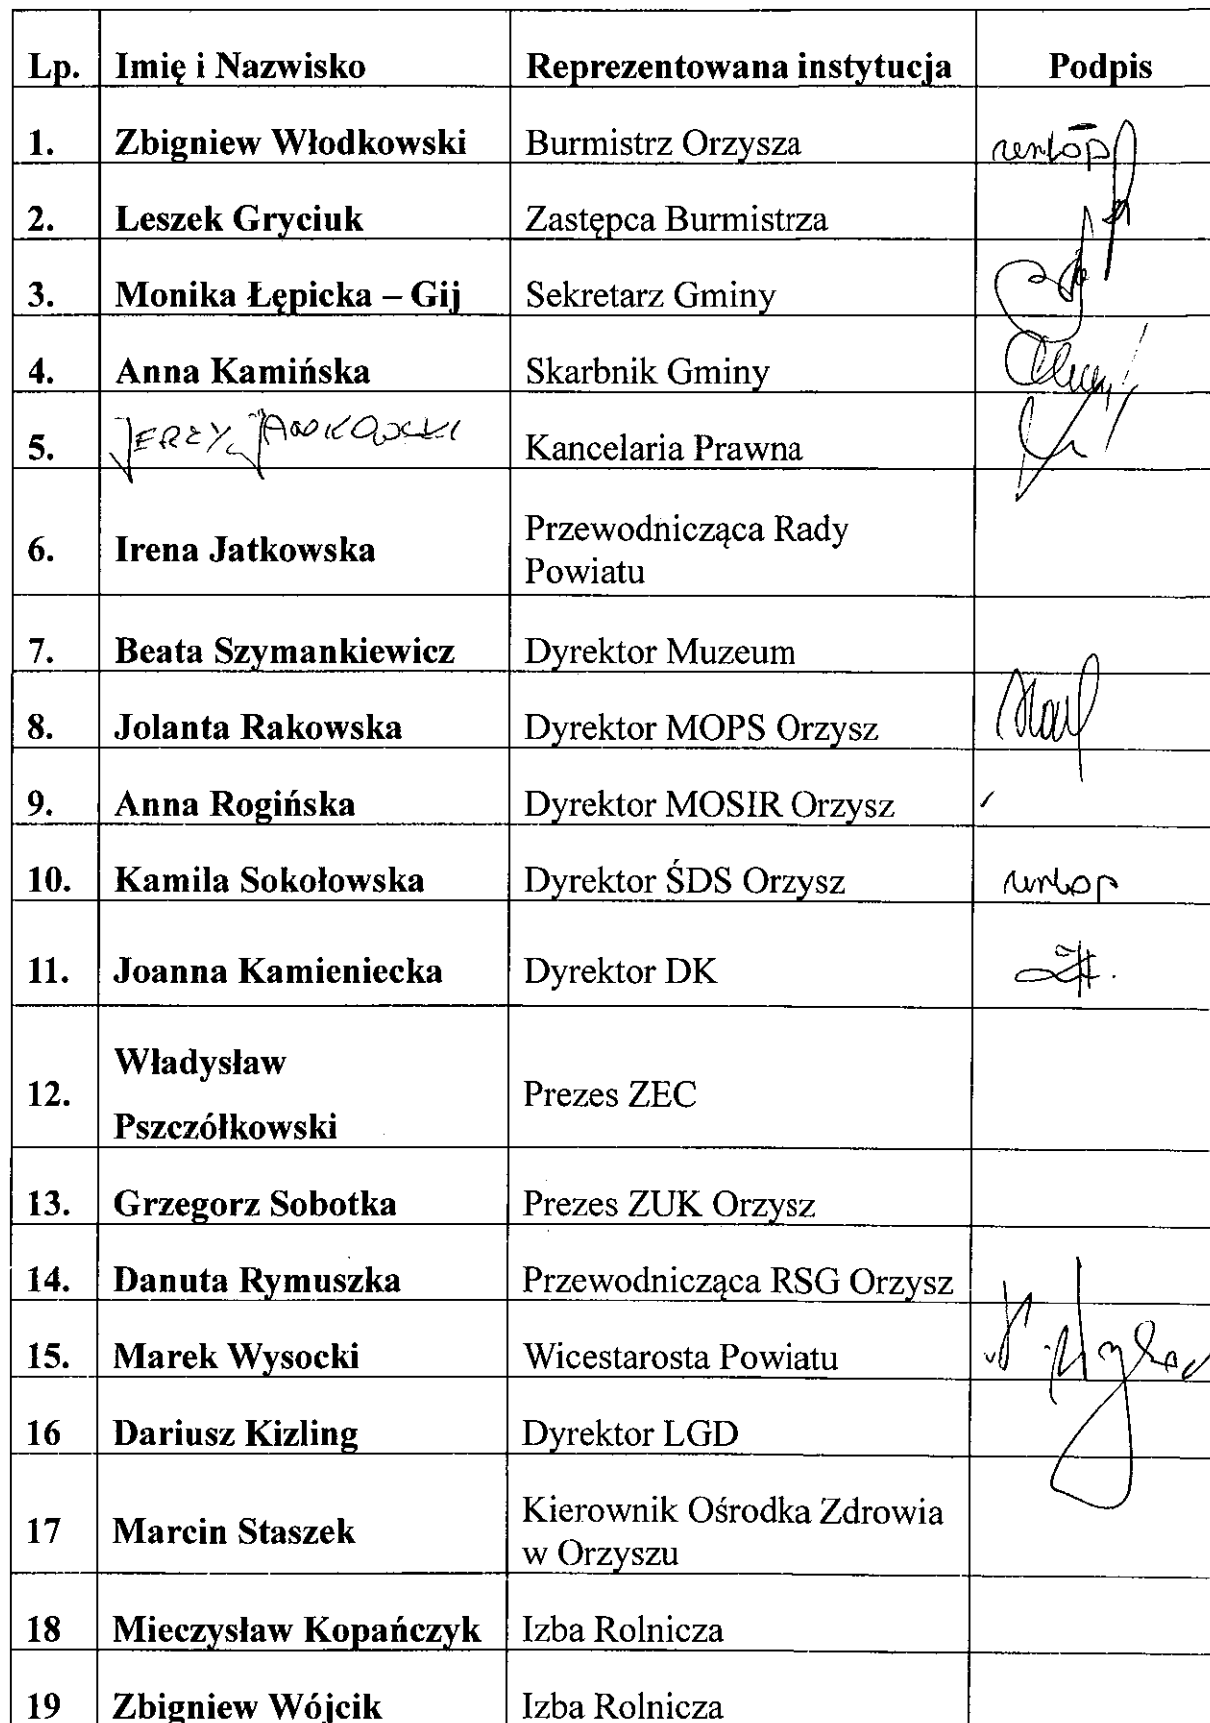 Lp. Imię i Nazwisko Reprezentowana instytucja Podpis
1. Zbigniew Włodkowski Burmistrz Orzysza urlop
2. Leszek Gryciuk Zastępca Burmistrza
3. Monika Łępicka – Gij Sekretarz Gminy
4. Anna Kamińska Skarbnik Gminy
5. JERZY JANKOWSKI Kancelaria Prawna
6. Irena Jatkowska Przewodnicząca Rady
Powiatu
7. Beata Szymankiewicz Dyrektor Muzeum
8. Jolanta Rakowska Dyrektor MOPS Orzysz
9. Anna Rogińska Dyrektor MOSIR Orzysz
10. Kamila Sokołowska Dyrektor ŚDS Orzysz urlop
11. Joanna Kamieniecka Dyrektor DK
12. Władysław
Pszczółkowski Prezes ZEC
13. Grzegorz Sobotka Prezes ZUK Orzysz
14. Danuta Rymuszka Przewodnicząca RSG Orzysz
15. Marek Wysocki Wicestarosta Powiatu
16 Dariusz Kizling Dyrektor LGD
17 Marcin Staszek Kierownik Ośrodka Zdrowia
w Orzyszu
18 Mieczysław Kopańczyk Izba Rolnicza
19 Zbigniew Wójcik Izba Rolnicza